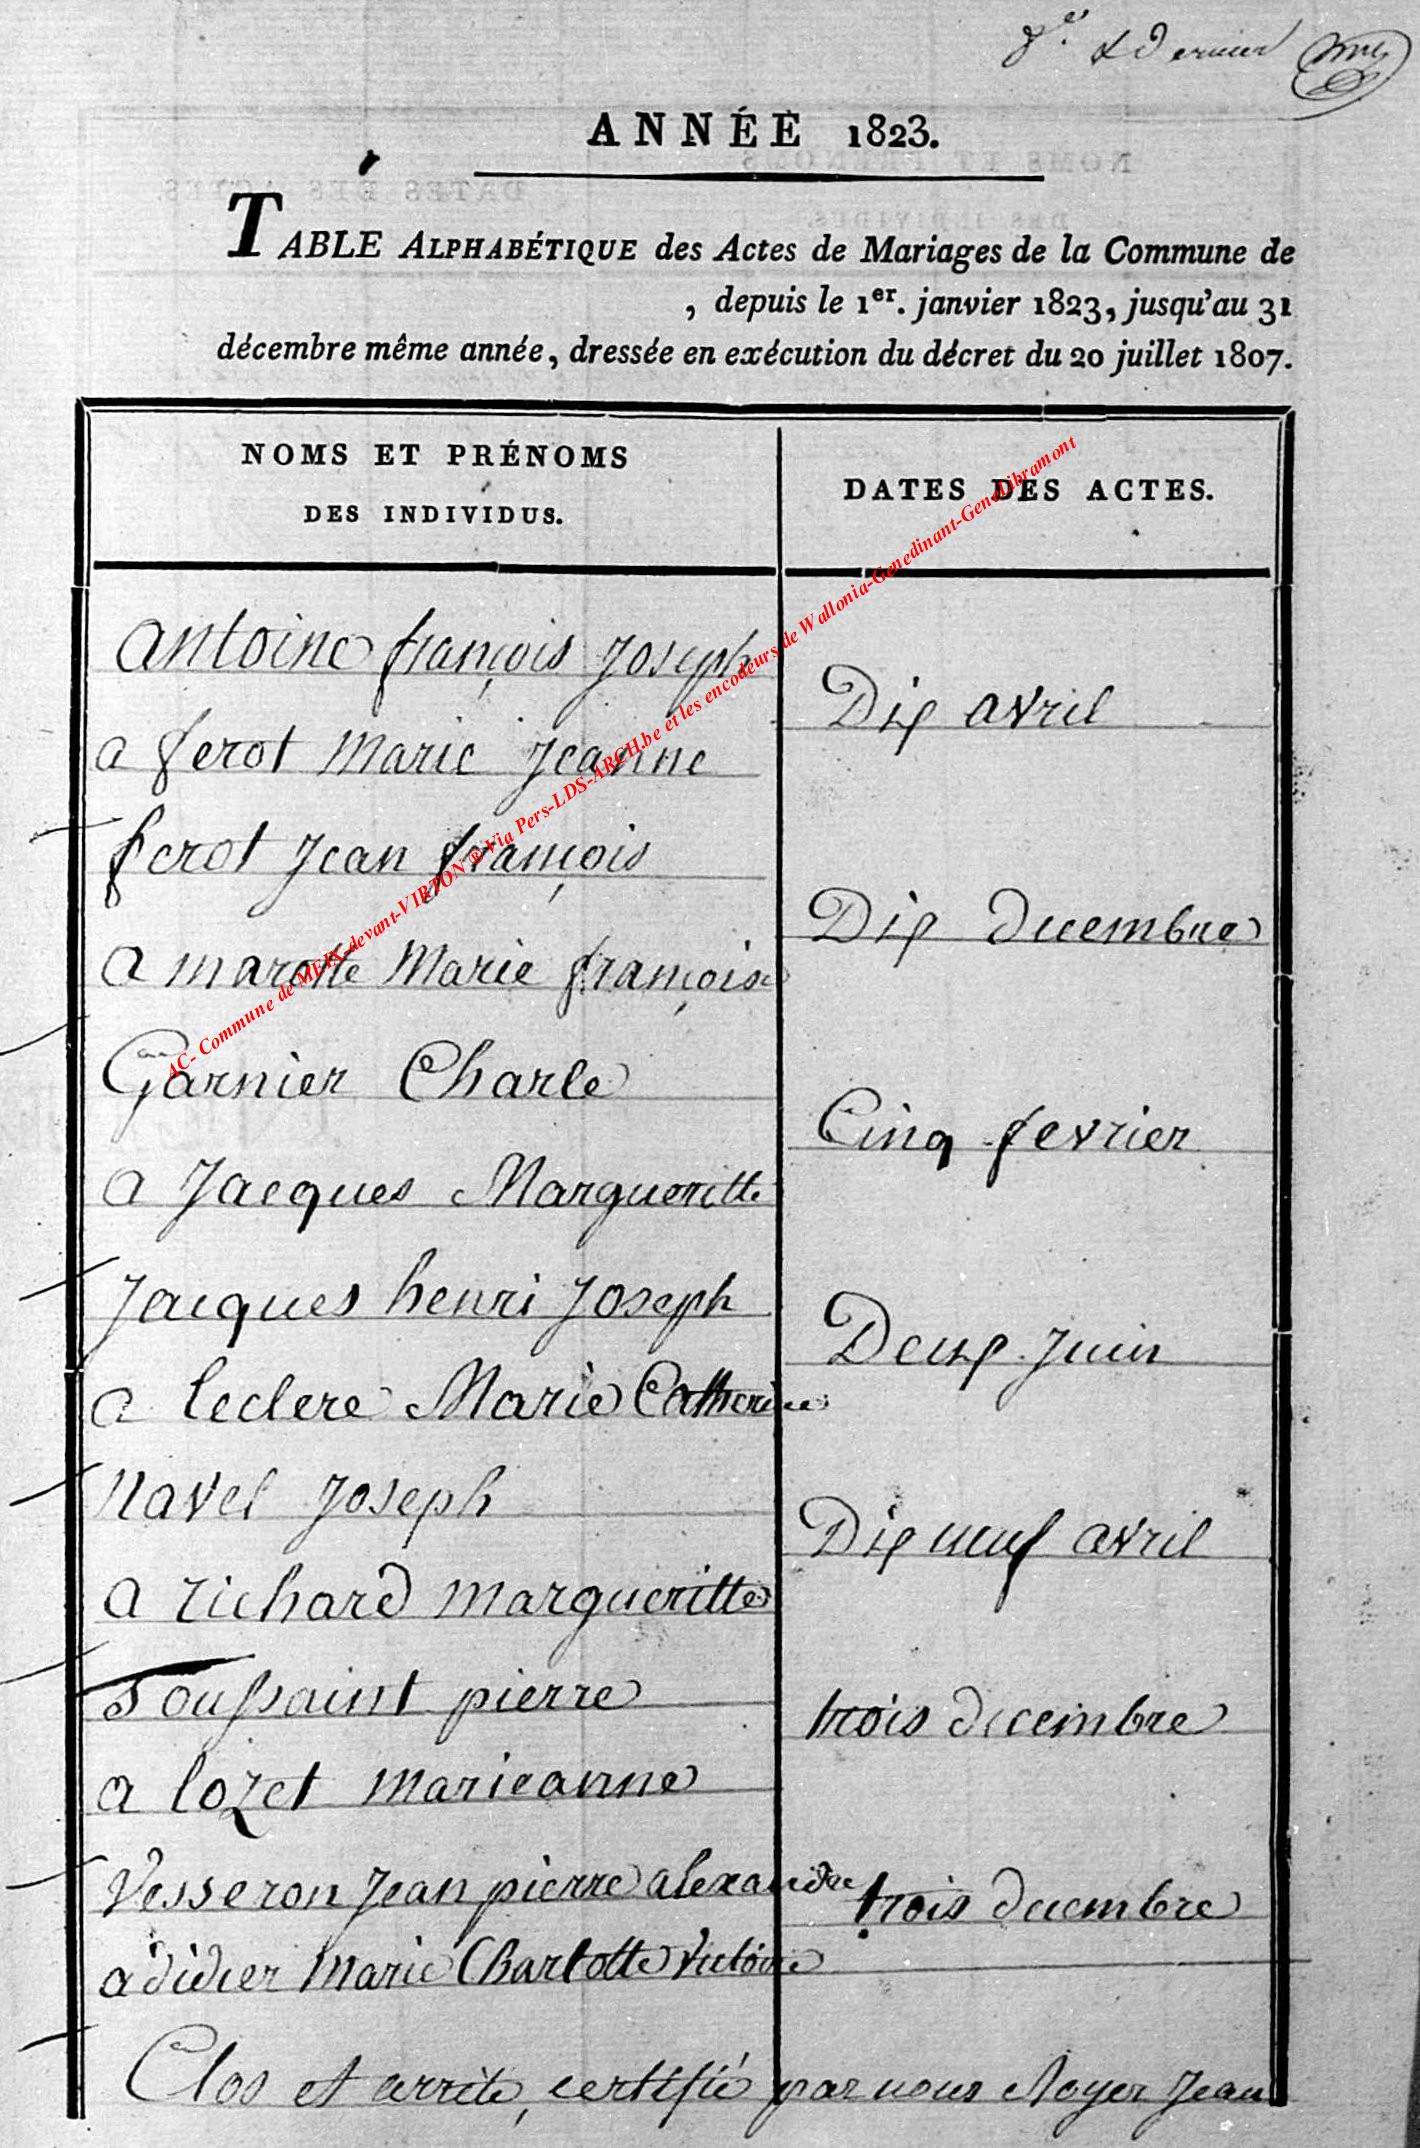 8e. & Dernier
ANNÉE 1823.
TABLE ALPHABÉTIQUE des Actes de Mariages de la Commune de
, depuis le 1er. janvier 1823, jusqu'au 31
décembre même année, dressée en exécution du décret du 20 juillet 1807.
NOMS ET PRÉNOMS
DES INDIVIDUS.
DATES DES ACTES.
AC- Commune de MEIX-devant-VIRTON ® Via Pers-LDS-ARCH.be et les encodeurs de Wallonia-Genedinant-GeneLibramont
antoine françois Joseph
Dix avril
a ferot Marie Jeanne
ferot Jean françois
Dix decembre
a marotte Marie françoise
Garnier Charle
Cinq fevrier
a Jacques Margueritte
Jacques henri Joseph
Deux Juin
a leclere Marie Catherine
Navel Joseph
Dix neuf avril
a richard margueritte
Toussaint pierre
trois decembre
a lozet marieanne
Vesseron Jean pierre alexandre
trois decembre
a didier Marie Charlotte Victoire
Clos et arrêté, certifié par nous Noyer Jean